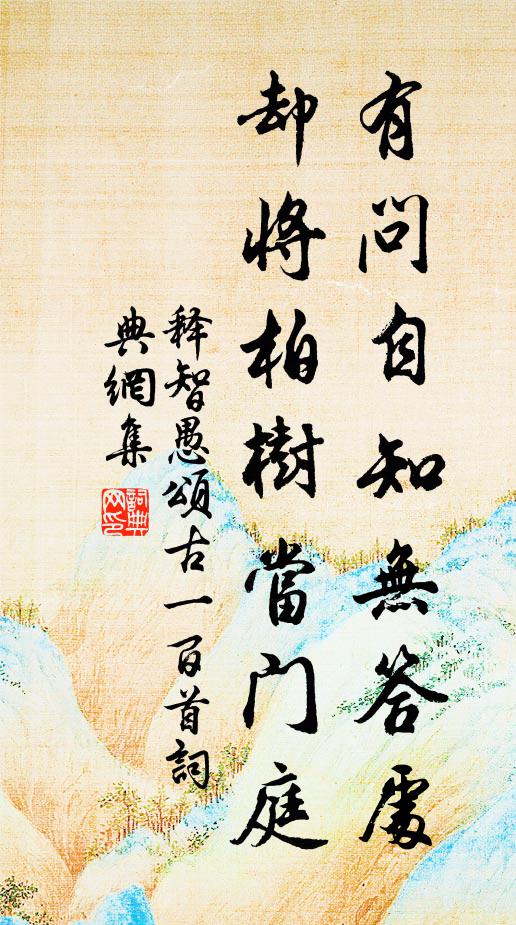 有問自知無答處
却將柏樹當門庭
释智愚頌古一百首詞
典網集
詞典
网印